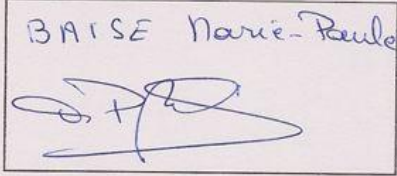 BAISE Marie-Paule